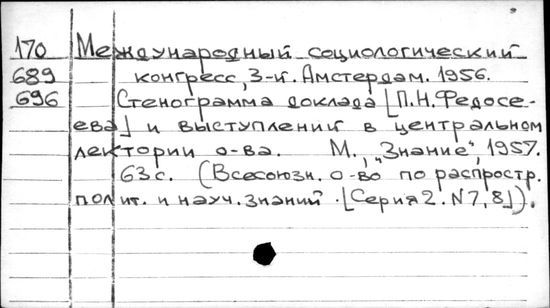 170 Международный социологический
689 конгресс, 3-й. Амстердам. 1956.
696 Стенограмма доклада [П.Н.Федосе-
ева] и выступлений в центральном
лектории о-ва. М., "Знание", 1957.
63с. (Всесоюзн. о-во по распростр.
полит. и науч. знаний. [Серия 2. N7,8]).